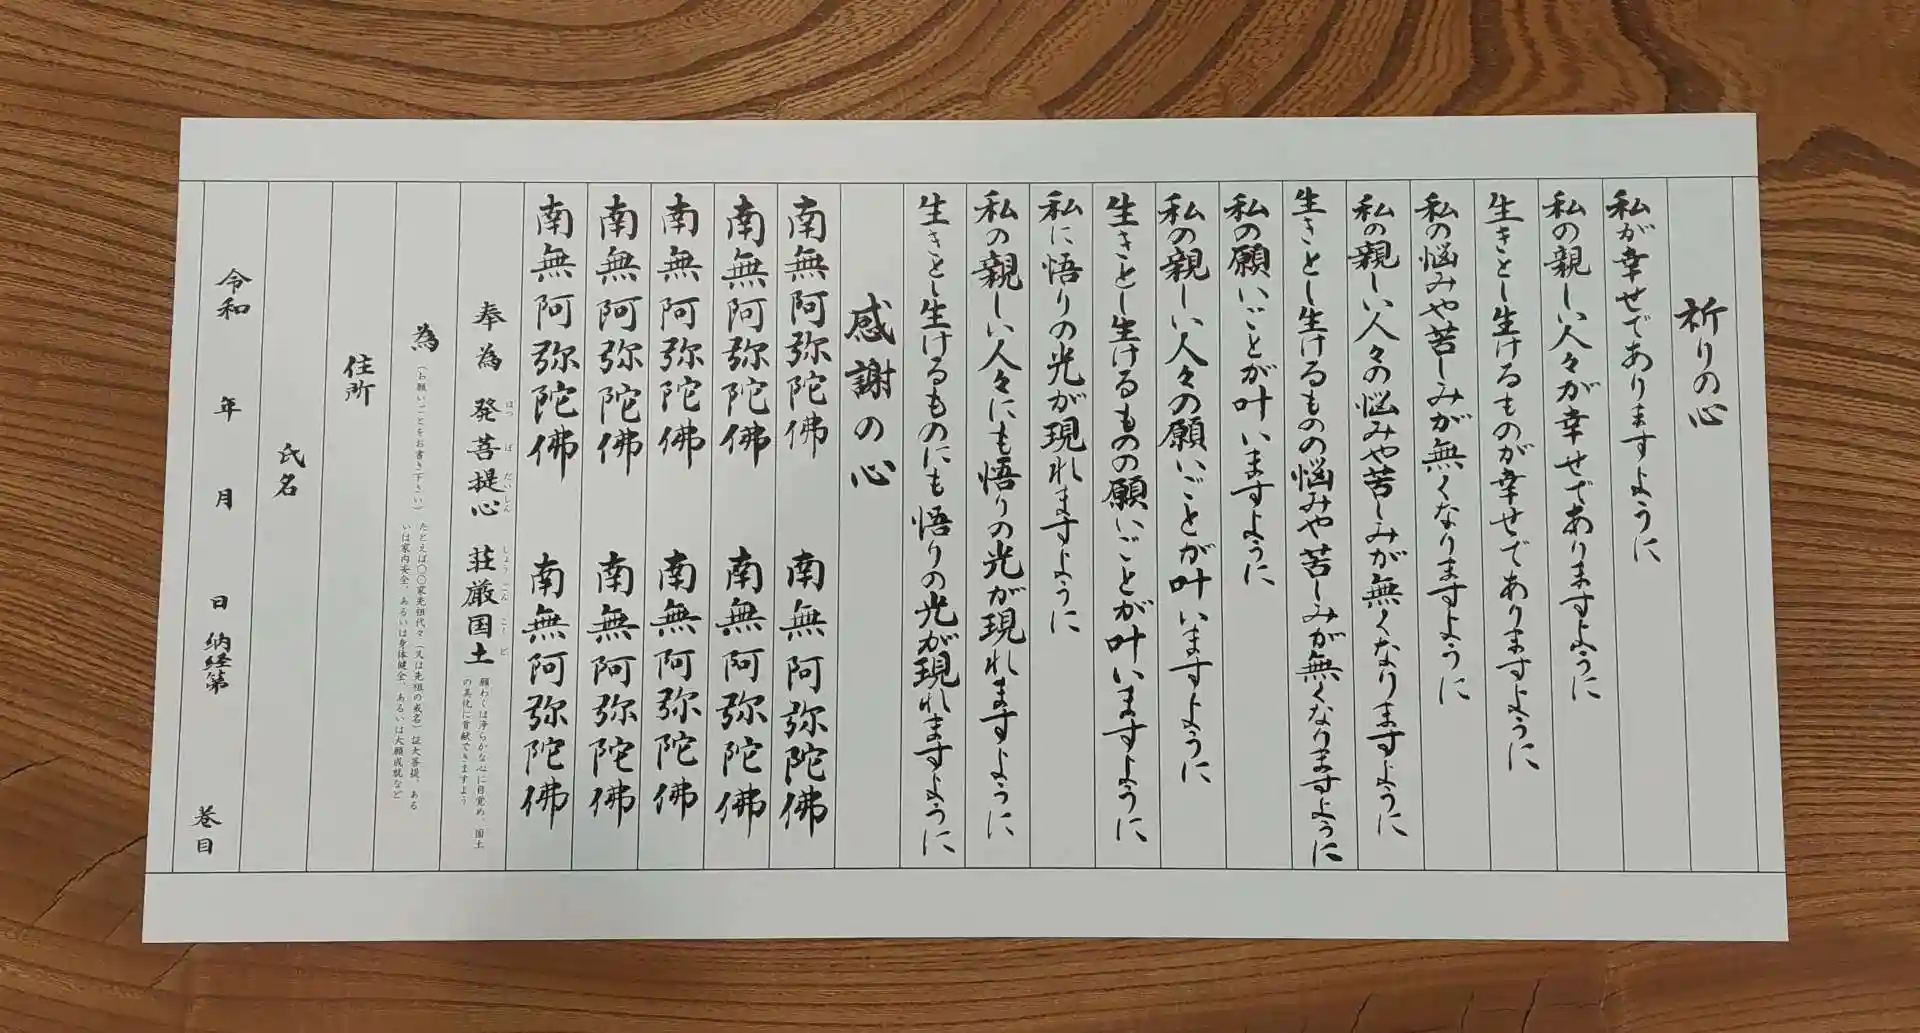 祈りの心
私が幸せでありますように
私の親しい人々が幸せでありますように
生きとし生けるものが幸せでありますように
私の悩みや苦しみが無くなりますように
私の親しい人々の悩みや苦しみが無くなりますように
生きとし生けるものの悩みや苦しみが無くなりますように
私の願いごとが叶いますように
私の親しい人々の願いごとが叶いますように
生きとし生けるものの願いごとが叶いますように
私に悟りの光が現れますように
私の親しい人々にも悟りの光が現れますように
生きとし生けるものにも悟りの光が現れますように
感謝の心
南無阿弥陀佛 南無阿弥陀佛
南無阿弥陀佛 南無阿弥陀佛
南無阿弥陀佛 南無阿弥陀佛
南無阿弥陀佛 南無阿弥陀佛
南無阿弥陀佛 南無阿弥陀佛
奉為 発菩提心 荘厳国土
はつ ぼ だいしん しょう ごん こく ど
願わくは浄らかな心に目覚め、国土
の美化に貢献できますよう
為(お願いごとをお書き下さい)
たとえば〇〇家先祖代々(又は先祖の戒名)証大菩提、ある
いは家内安全、あるいは身体健全、あるいは大願成就など
住所
氏名
令和 年 月 日 納経第 巻目